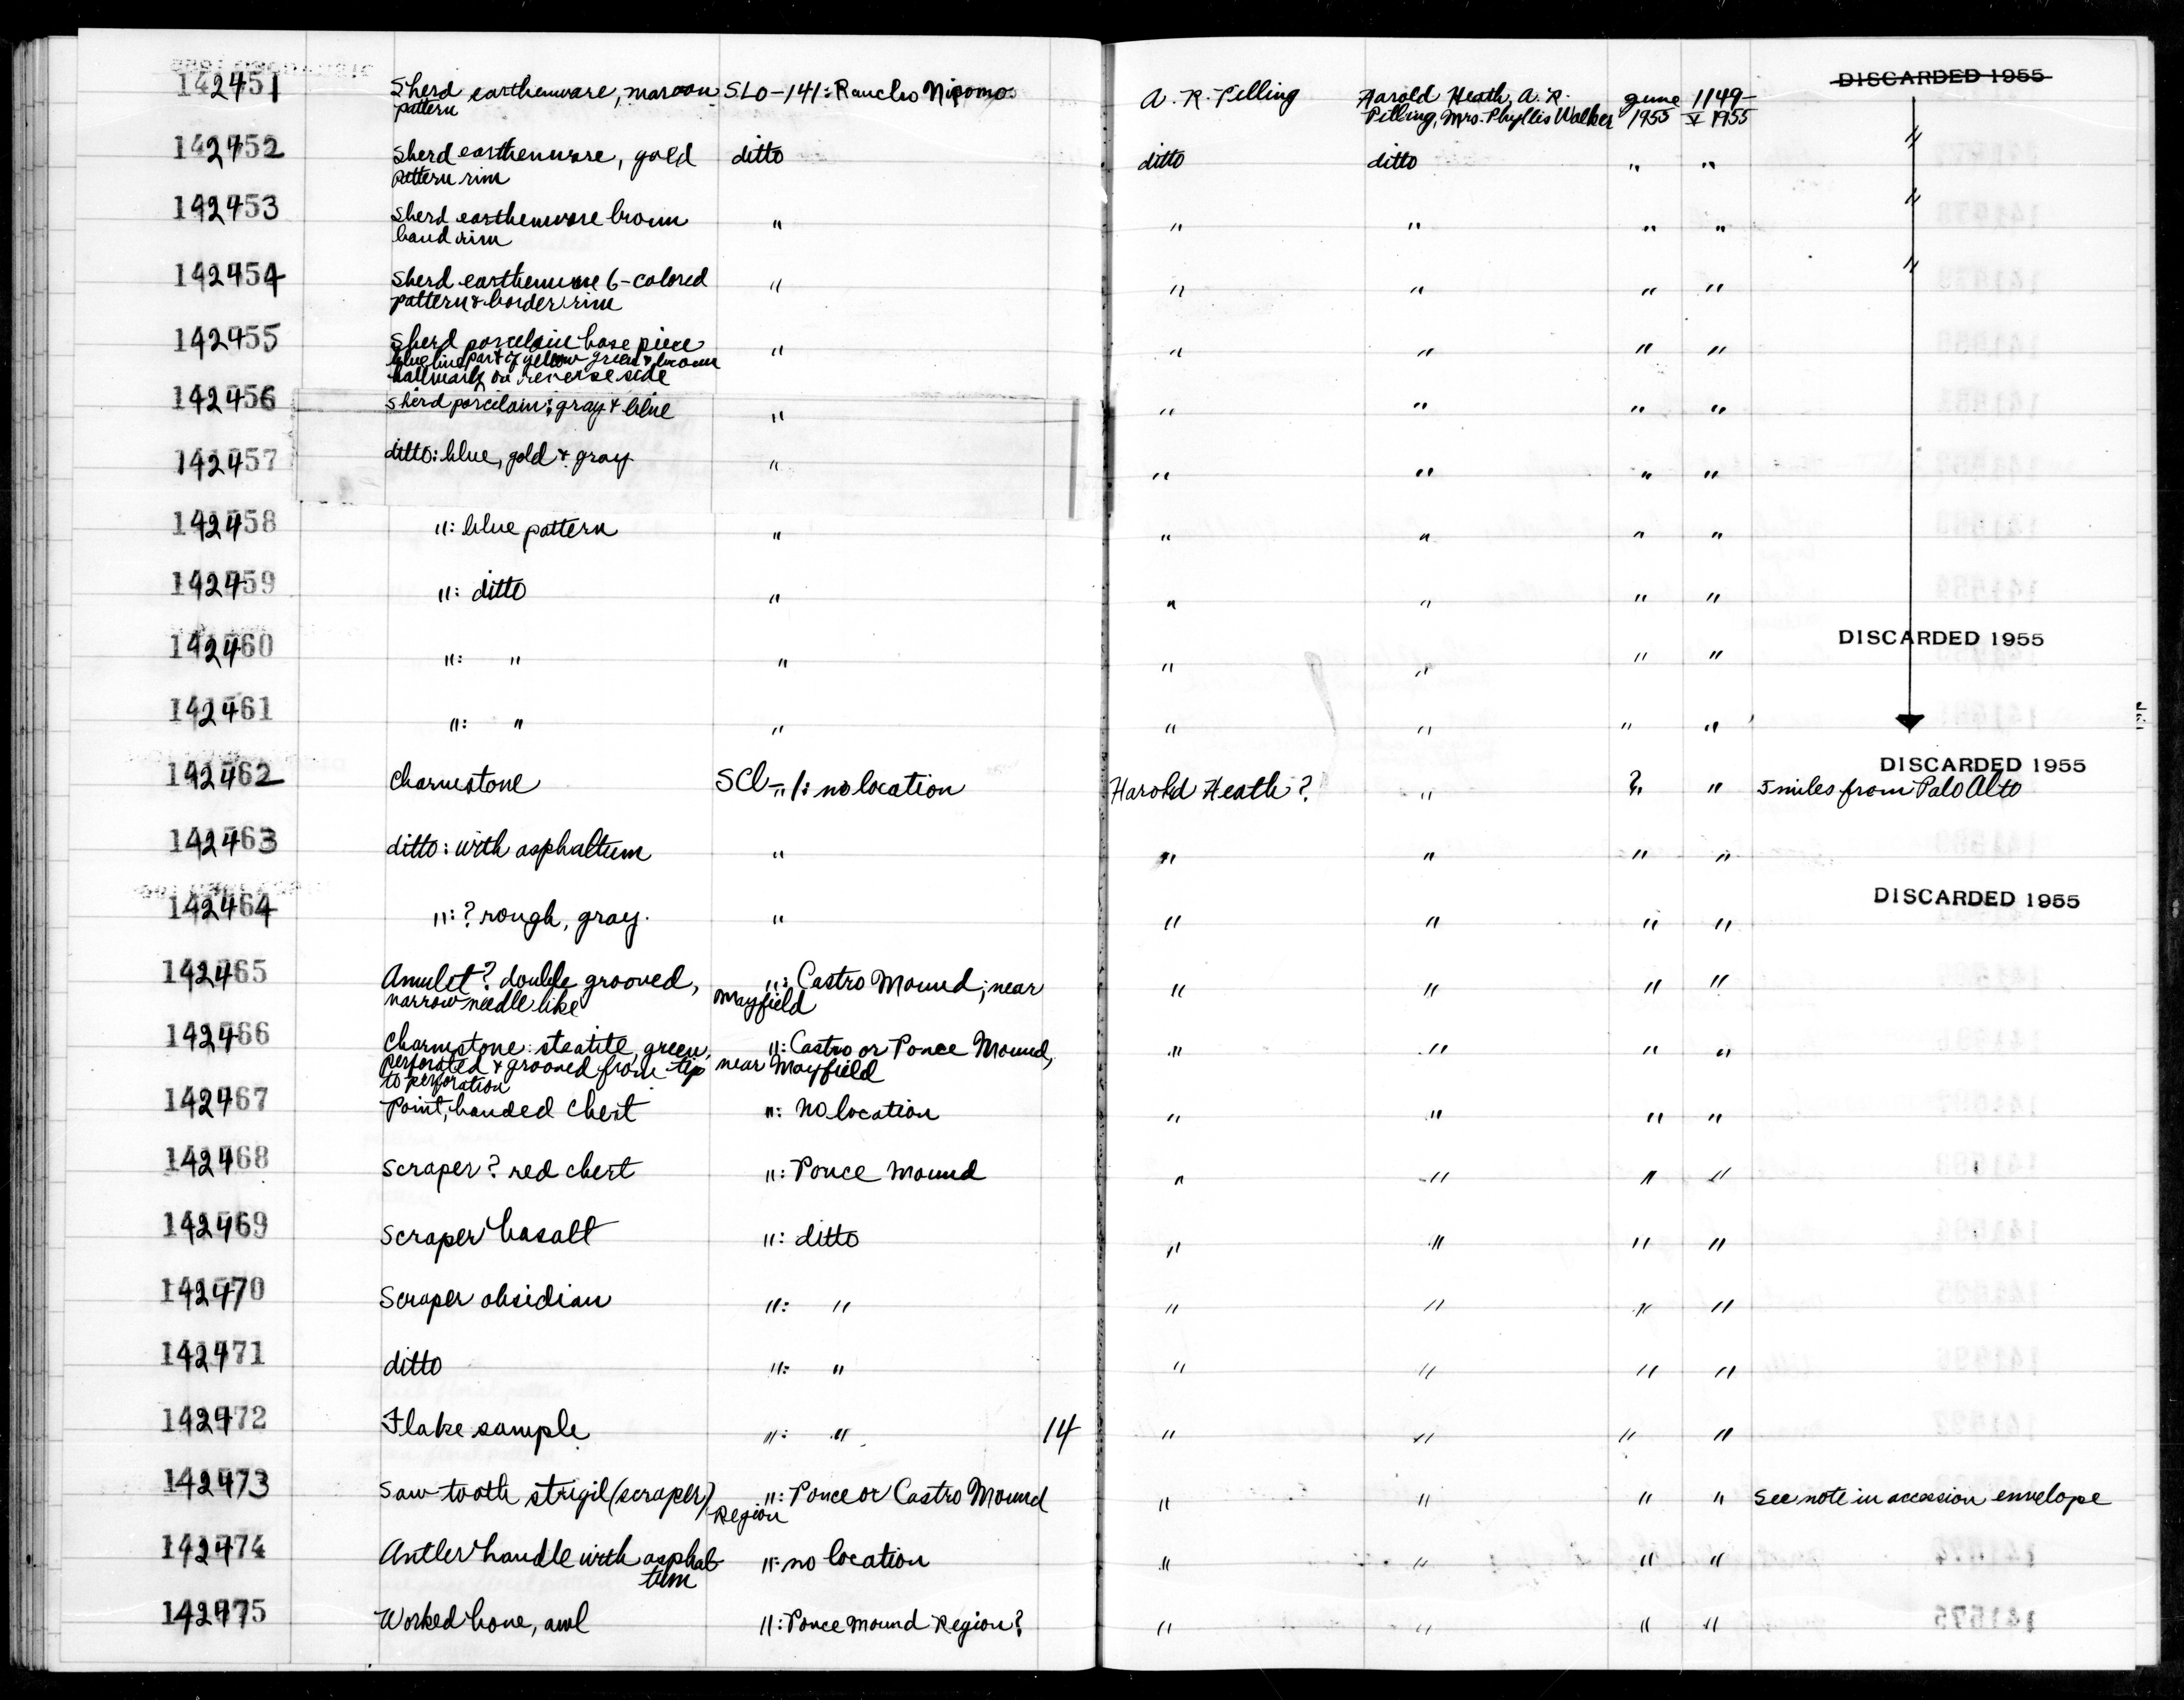 142451 Sherd earthenware, maroon SLO-141: Rancho Nipomo A. R. Pilling Harold Heath, A. R. June 1149- DISCARDED 1955
pattern Pilling, Mrs. Phyllis Walker 1955 V 1955
142452 Sherd earthenware, gold ditto ditto ditto " " "
pattern rim
142453 Sherd earthenware brown " " " " " "
band rim
142454 Sherd earthenware 6-colored " " " " " "
pattern & border rim
142455 Sherd porcelain base piece " " " " "
blue line, part of yellow green & brown
hallmark on reverse side
142456 Sherd porcelain: gray & blue " " " " "
142457 ditto: blue, gold & gray " " " " "
142458 ": blue pattern " " " " "
142459 ": ditto " " " " "
142460 ": " " " " " " DISCARDED 1955
142461 ": " " " " " "
DISCARDED 1955
142462 Charmstone SCl-"/: no location Harold Heath? " ? " 5 miles from Palo Alto
142463 ditto: with asphaltum " " " " "
142464 ": ? rough, gray. " " " " " DISCARDED 1955
142465 Amulet? double grooved, ": Castro Mound; near " " " "
narrow needle like Mayfield
142466 Charmstone: steatite, green, ": Castro or Ponce Mound, " " " "
perforated & grooved from tip near Mayfield
to perforation
142467 Point, banded chert ": no location " " " "
142468 Scraper? red chert ": Ponce Mound " " " "
142469 Scraper basalt ": ditto " " " "
142470 Scraper obsidian ": " " " " "
142471 ditto ": " " " " "
142472 Flake sample ": " 14 " " " "
142473 Saw-tooth strigil (scraper) ": Ponce or Castro Mound " " " " See note in accession envelope
Region
142474 Antler handle with asphal- ": no location " " " "
tum
142475 Worked bone, awl ": Ponce Mound Region? " " " "